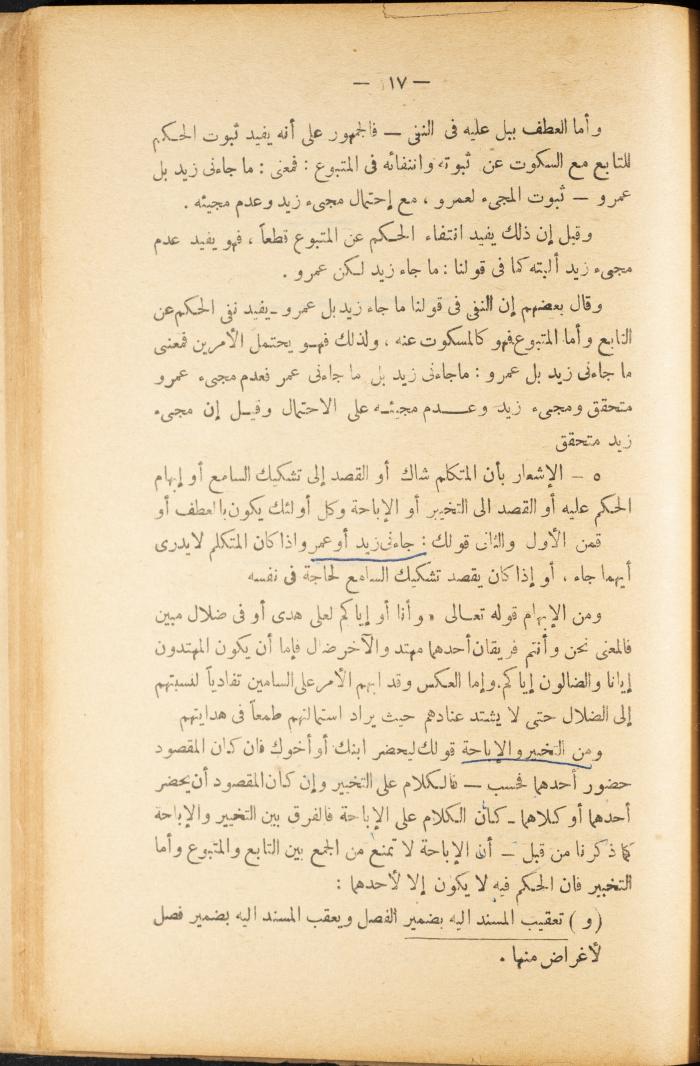 — ١٧ —
وأما العطف ببل عليه فى النفى — فالجمهور على أنه يفيد ثبوت الحكم
للتابع مع السكوت عن ثبوته وانتفائه فى المتبوع : فمعنى : ما جاءنى زيد بل
عمرو — ثبوت المجىء لعمرو ، مع إحتمال مجىء زيد وعدم مجيئه .
وقيل إن ذلك يفيد انتفاء الحكم عن المتبوع قطعاً ، فهو يفيد عدم
مجىء زيد ألبته كما فى قولنا : ما جاء زيد لكن عمرو .
وقال بعضهم إن النفى فى قولنا ما جاء زيد بل عمرو ـ يفيد نفى الحكم عن
التابع وأما المتبوع فهو كالمسكوت عنه ، ولذلك فهـو يحتمل الأمرين فمعنى
ما جاءنى زيد بل عمرو : ماجاءنى زيد بل ما جاءنى عمر فعدم مجىء عمرو
متحقق ومجىء زيد وعـــدم مجيئـه على الاحتمال وقيـل إن مجىء
زيد متحقق
٥ – الإشعار بأن المتكلم شاك أو القصد إلى تشكيك السامع أو إبهام
الحكم عليه أو القصد الى التخيير أو الإباحة وكل أولئك يكون بالعطف أو
فمن الأول والثانى قولك : جاءنى زيد أو عمرو اذا كان المتكلم لا يدرى
أيهما جاء ، أو إذا كان يقصد تشكيك السامع لحاجة فى نفسه
ومن الإبهام قوله تعـالى « وأنا أو إياكم لعلى هدى أو فى ضلال مبين
فالمعنى نحن وأنتم فريقان أحدهما مهتد والآخر ضال فإما أن يكون المهتدون
إيانا والضالون إياكم . وإما العكس وقد ابهم الأمر على السامين تفادياً لنسبتهم
إلى الضلال حتى لا يشتد عنادهم حيث يراد استمالتهم طمعاً فى هدايتهم
ومن التخيير والإباحة قولك ليحضر ابنك أو أخوك فان كان المقصود
حضور أحدهما فحسب — فالكلام على التخيير وإن كان المقصود أن يحضر
أحدهما أو كلاهما ـ كان الكلام على الإباحة فالفرق بين التخيير والإباحة
كما ذكرنا من قبل — أن الإباحة لا تمنع من الجمع بين التابع والمتبوع وأما
التخيير فان الحكم فيه لا يكون إلا لأحدهما :
( و ) تعقيب المسند اليه بضمير الفصل ويعقب المسند اليه بضمير فصل
لأغراض منها .